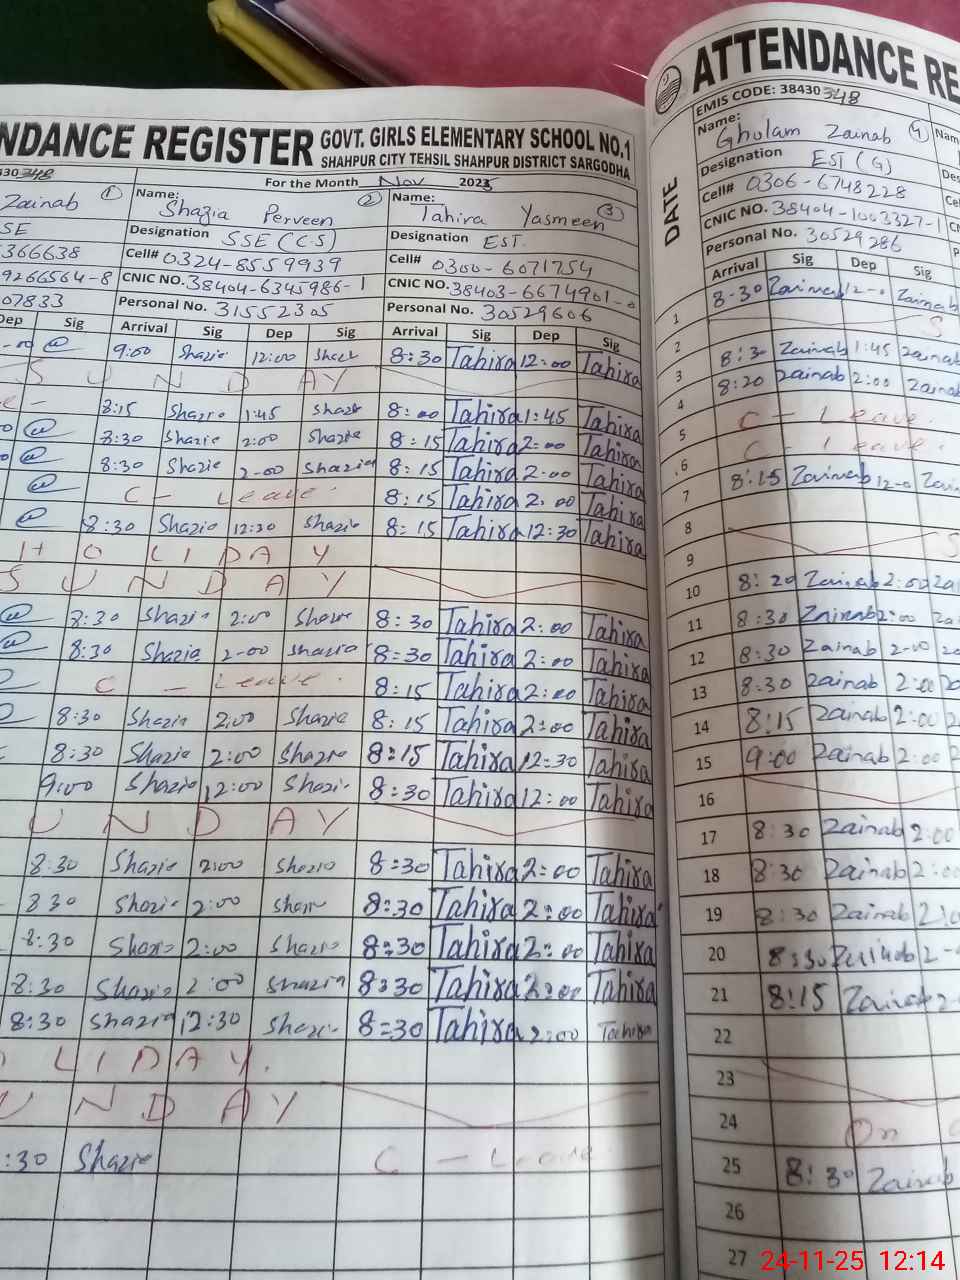 NDANCE REGISTER GOVT. GIRLS ELEMENTARY SCHOOL NO.1
SHAHPUR CITY TEHSIL SHAHPUR DISTRICT SARGODHA
430 348 For the Month Nov 2025
Zainab ① Name: Shazia Perveen ② Name: Tahira Yasmeen ③
SE Designation SSE (C.S) Designation EST.
366638 Cell# 0324-8559939 Cell# 0300-6071754
9266564-8 CNIC NO. 38404-6345986-1 CNIC NO. 38403-6674901-0
07833 Personal No. 31552305 Personal No. 30529606
Dep Sig Arrival Sig Dep Sig Arrival Sig Dep Sig
-00 @ 9:00 Shazia 12:00 Shazi 8:30 Tahira 12:00 Tahira
S U N D A Y
8:15 Shazia 1:45 Shazia 8:00 Tahira 1:45 Tahira
@ 8:30 Shazia 2:00 Shazia 8:15 Tahira 2:00 Tahira
@ 8:30 Shazia 2-00 Shazia 8:15 Tahira 2:00 Tahira
@ C - Leave. 8:15 Tahira 2:00 Tahira
@ 8:30 Shazia 12:30 Shazia 8:15 Tahira 12:30 Tahira
H O L I D A Y
S U N D A Y
@ 8:30 Shazia 2:00 Shazia 8:30 Tahira 2:00 Tahira
@ 8:30 Shazia 2-00 Shazia 8:30 Tahira 2:00 Tahira
C - Leave. 8:15 Tahira 2:00 Tahira
8:30 Shazia 2:00 Shazia 8:15 Tahira 2:00 Tahira
8:30 Shazia 2:00 Shazia 8:15 Tahira 12:30 Tahira
9:00 Shazia 12:00 Shazi- 8:30 Tahira 12:00 Tahira
U N D A Y
8:30 Shazia 2:00 Shazia 8:30 Tahira 2:00 Tahira
8 30 Shazia 2:00 Shazia 8:30 Tahira 2:00 Tahira
8:30 Shazia 2:00 Shazia 8:30 Tahira 2:00 Tahira
8:30 Shazia 2:00 Shazia 8:30 Tahira 2:00 Tahira
8:30 Shazia 12:30 Shazia 8=30 Tahira 2:00 Tahira
L I D A Y.
U N D A Y
:30 Shazia C - Leave
ATTENDANCE RE
EMIS CODE: 38430 348
DATE
Name: Gholam Zainab ④ Nam
Designation EST (G) Des
Cell# 0306-6748228 Ce
CNIC NO. 38404-1003327-1
Personal No. 30529286
Arrival Sig Dep Sig
1 8-30 Zainab 12-0 Zainab
2 S
3 8:30 Zainab 1:45 Zainab
4 8:20 Zainab 2:00 Zainab
5 C - Leave.
6 C - Leave.
7 8:15 Zainab 12-0 Zain
8
9 S
10 8:20 Zainab 2:00 Za
11 8:30 Zainab 2:00 Za
12 8:30 Zainab 2-00 Za
13 8:30 Zainab 2:00 Z
14 8:15 Zainab 2:00 Z
15 9:00 Zainab 2:00 Z
16
17 8:30 Zainab 2:00
18 8:30 Zainab 2:00
19 8:30 Zainab 2:0
20 8:30 Zainab 2-
21 8:15 Zainab 2
22
23
24 On
25 8:30 Zainab
26
27
24-11-25 12:14